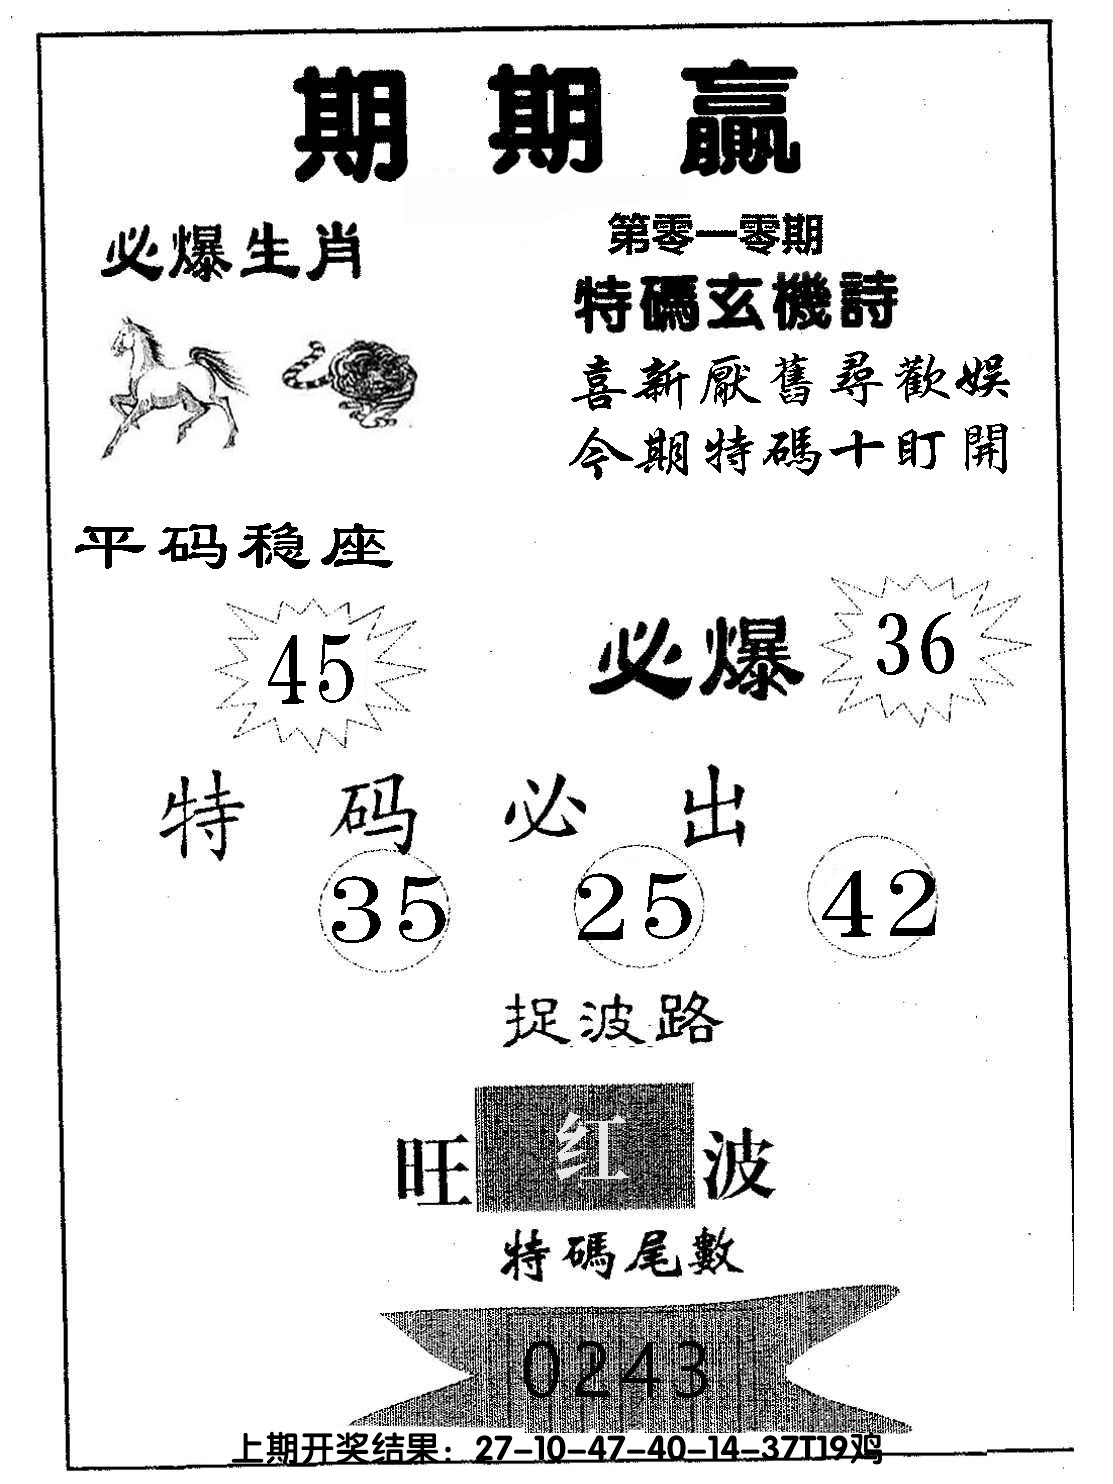 期期赢
必爆生肖
第零一零期
特碼玄機詩
喜新厭舊尋歡娱
今期特碼十盯開
平码稳座
45
必爆 36
特码必出
35 25 42
捉波路
旺红波
特碼尾數
0243
上期开奖结果：27-10-47-40-14-37T19鸡